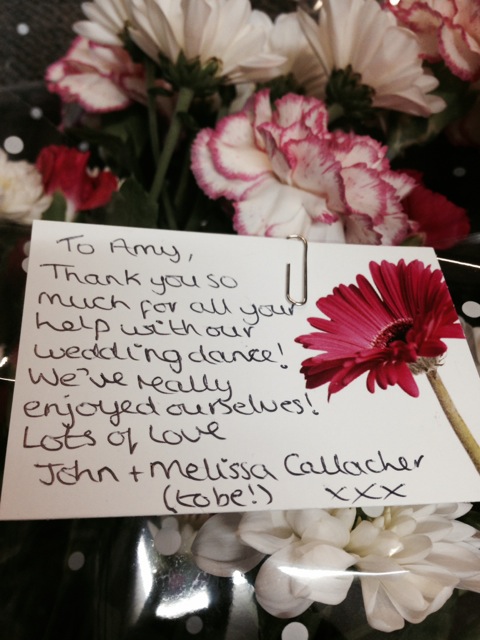 To Amy,
Thank you so
much for all your
help with our
wedding dance!
We've really
enjoyed ourselves!
Lots of love
John + Melissa Callacher
(to be!) xxx